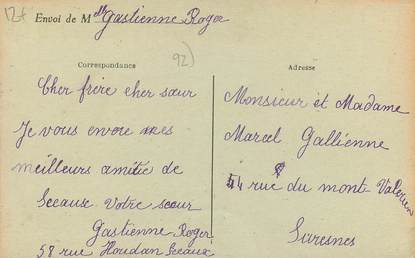 12+
Envoi de Mlle Gastienne Roger
92)
Correspondance
Cher frère cher sœur
Je vous envoie mes
meilleurs amitie de
Sceause votre sœur
Gastienne Roger
58 rue Houdan Sceaux
Adresse
Monsieur et Madame
Marcel Gallienne
54 rue du mont Valerien
Suresnes